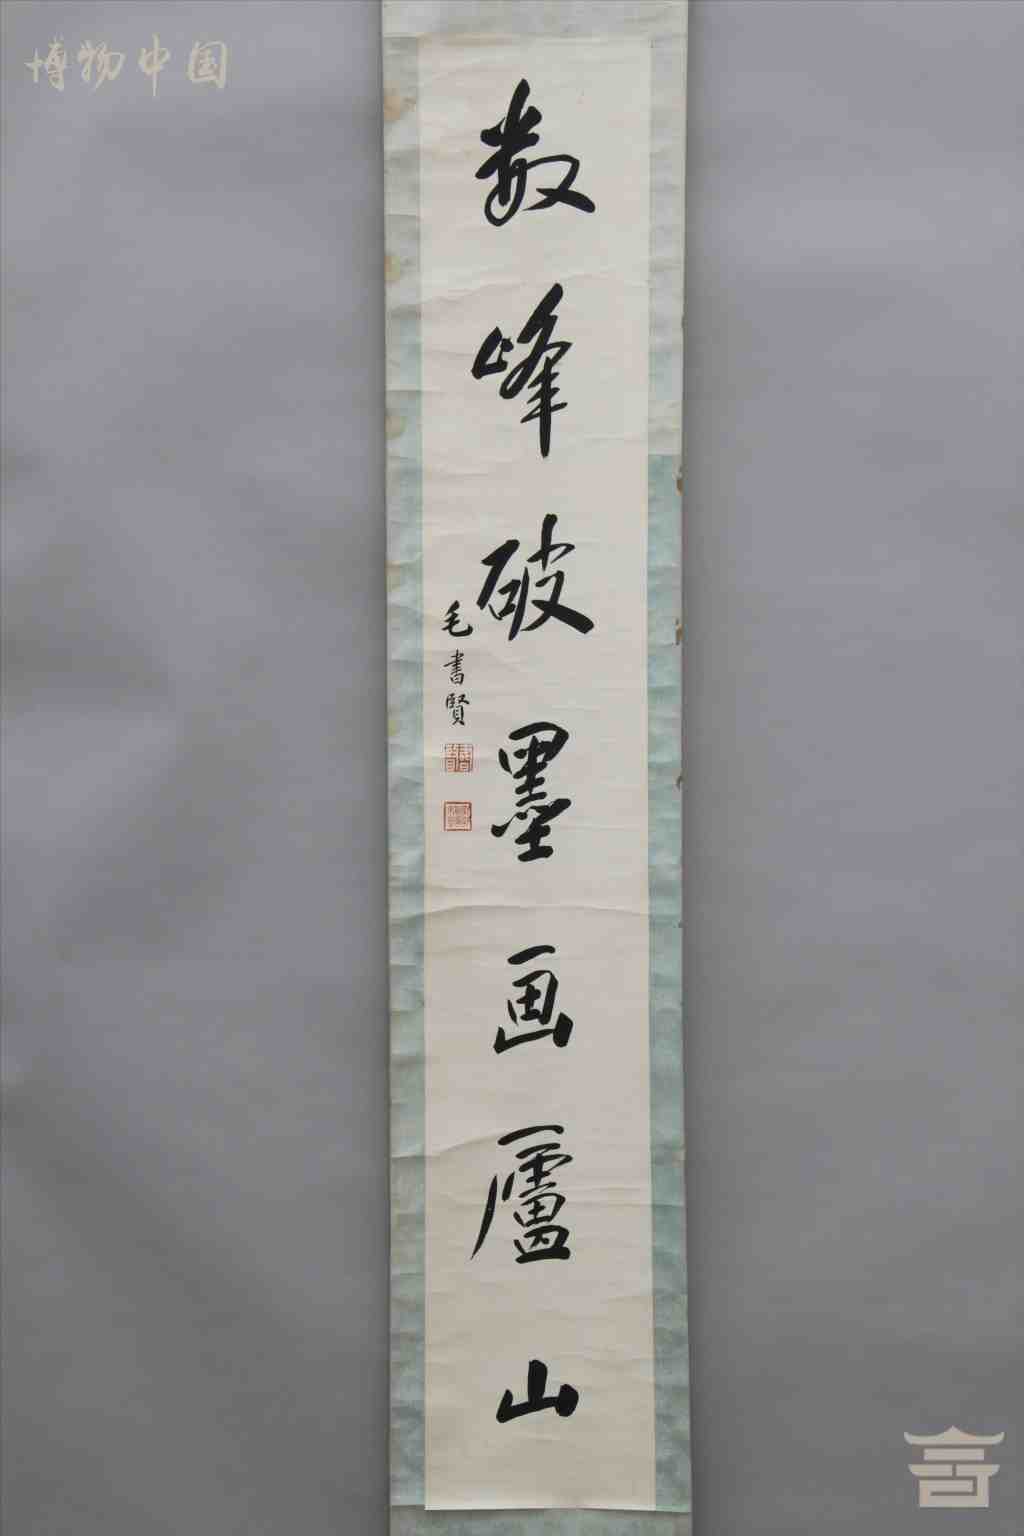 博物中国
数峰破墨画廬山
毛書賢